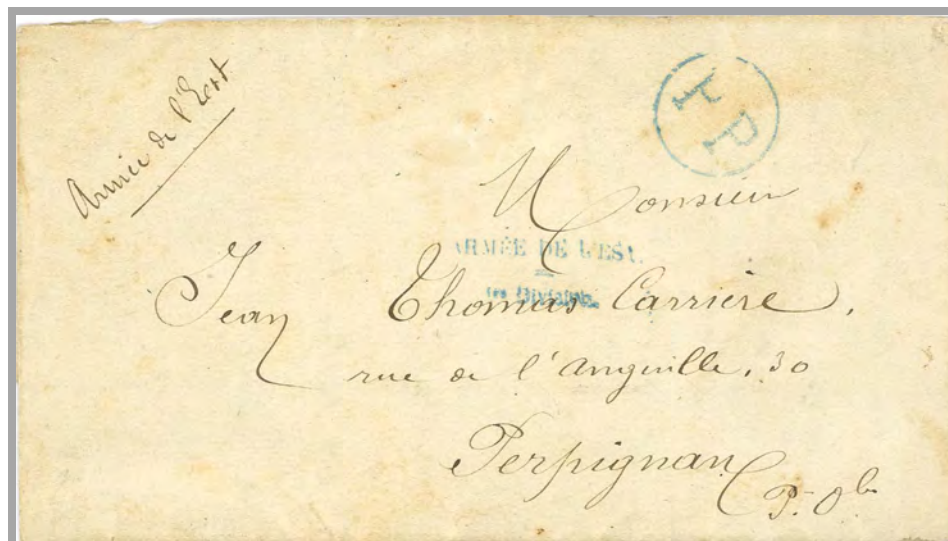 Armée de l'Est
PP
Monsieur
ARMÉE DE L'EST.
1re Division.
Jean Thomas Carrière,
rue de l'Anguille, 30
Perpignan
P. Ole